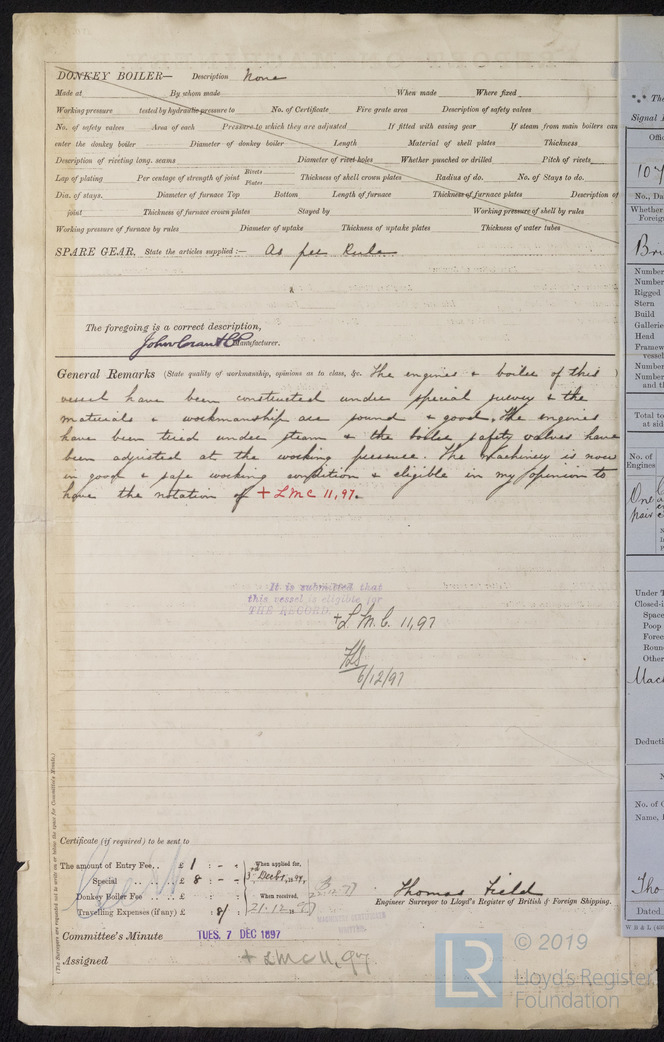 DONKEY BOILER— Description None
Made at By whom made When made Where fixed
Working pressure tested by hydraulic pressure to No. of Certificate Fire grate area Description of safety valves
No. of safety valves Area of each Pressure to which they are adjusted If fitted with easing gear If steam from main boilers can
enter the donkey boiler Diameter of donkey boiler Length Material of shell plates Thickness
Description of riveting long. seams Diameter of rivet holes Whether punched or drilled Pitch of rivets
Lap of plating Per centage of strength of joint Rivets Plates Thickness of shell crown plates Radius of do. No. of Stays to do.
Dia. of stays. Diameter of furnace Top Bottom Length of furnace Thickness of furnace plates Description of
joint Thickness of furnace crown plates Stayed by Working pressure of shell by rules
Working pressure of furnace by rules Diameter of uptake Thickness of uptake plates Thickness of water tubes
SPARE GEAR. State the articles supplied :— As per Rule
The foregoing is a correct description,
John Grant & Co Manufacturer.
General Remarks (State quality of workmanship, opinions as to class, &c. The engines & boiler of this )
vessel have been constructed under special survey & the
materials & workmanship are sound & good, the engines
have been tried under steam & the boiler safety valves have
been adjusted at the working pressure. The machinery is now
in good & safe working condition & eligible in my opinion to
have the notation of + LMC 11,97.
It is submitted that
this vessel is eligible for
THE RECORD.
+ L.M.C. 11,97
6/12/97
Certificate (if required) to be sent to
The amount of Entry Fee.. £ 1 : - -
Special £ 8 : - -
Donkey Boiler Fee £
Travelling Expenses (if any) £ : 8/
When applied for,
3rd Decbr, 1897,
When received,
21.12.1897
Thomas Field
Engineer Surveyor to Lloyd's Register of British & Foreign Shipping.
Committee's Minute TUES. 7 DEC 1897
Assigned + LMC 11,97
(The Surveyors are requested not to write on or below the space for Committee's Minute.)
Signal
No., Da
Whether
Foreig
Bri
Number
Number
Rigged
Stern
Build
Gallerie
Head
Framew
vessel
Number
Number
and th
Total to
at sid
No. of
Engines
One
pair
Under T
Closed-i
Space
Poop
Forec
Roun
Other
Mach
Deducti
No. of
Name,
Tho
Dated
LR © 2019
Lloyd's Register
Foundation